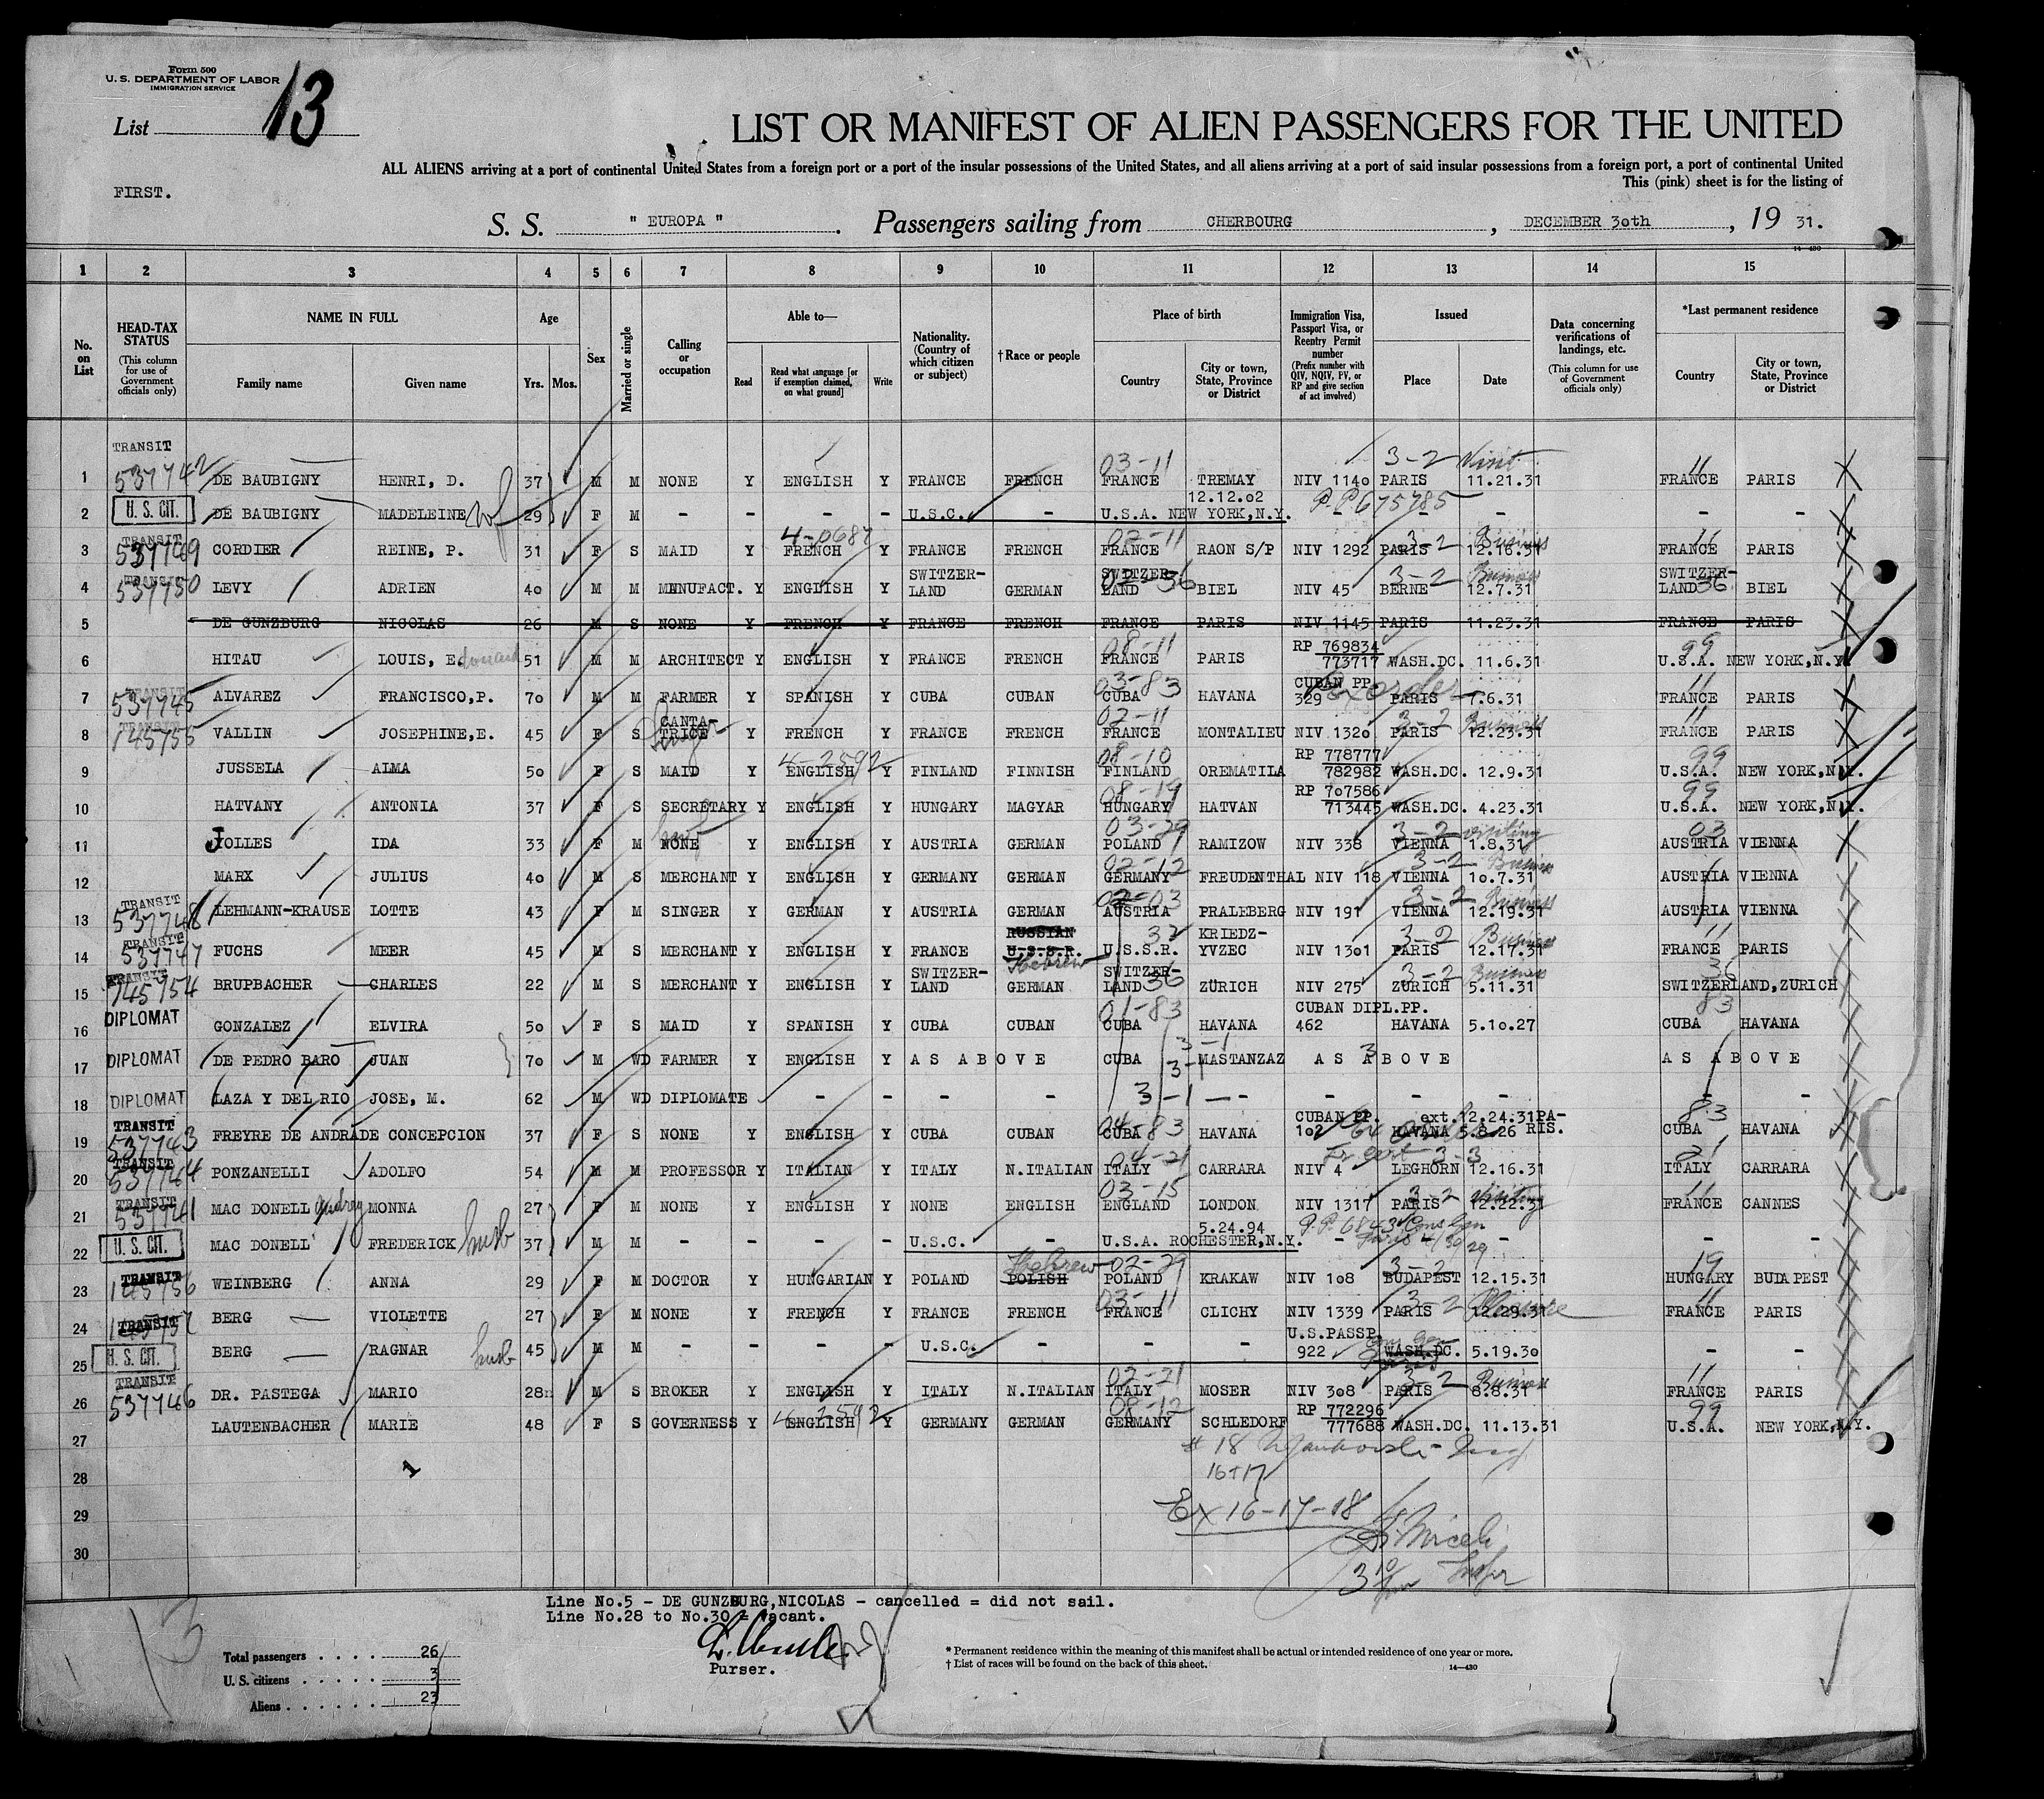 Form 500
U. S. DEPARTMENT OF LABOR
IMMIGRATION SERVICE
List 13
LIST OR MANIFEST OF ALIEN PASSENGERS FOR THE UNITED
ALL ALIENS arriving at a port of continental United States from a foreign port or a port of the insular possessions of the United States, and all aliens arriving at a port of said insular possessions from a foreign port, a port of continental United
This (pink) sheet is for the listing of
FIRST.
S. S. " EUROPA ". Passengers sailing from CHERBOURG, DECEMBER 30th, 19 31.
14—430
1 2 3 4 5 6 7 8 9 10 11 12 13 14 15
No. on List
HEAD-TAX STATUS (This column for use of Government officials only)
NAME IN FULL Family name Given name
Age Yrs. Mos.
Sex
Married or single
Calling or occupation
Able to— Read Read what language [or if exemption claimed, on what ground] Write
Nationality. (Country of which citizen or subject)
†Race or people
Place of birth Country City or town, State, Province or District
Immigration Visa, Passport Visa, or Reentry Permit number (Prefix number with QIV, NQIV, PV, or RP and give section of act involved)
Issued Place Date
Data concerning verifications of landings, etc. (This column for use of Government officials only)
*Last permanent residence Country City or town, State, Province or District
TRANSIT 03-11 3-2 Visit 11
1 537742 DE BAUBIGNY HENRI, D. 37 M M NONE Y ENGLISH Y FRANCE FRENCH FRANCE TREMAY NIV 1140 PARIS 11.21.31 FRANCE PARIS
12.12.02 P.P. 675785
2 U. S. CIT. DE BAUBIGNY MADELEINE wf 29 F M - - - U.S.C. - U.S.A. NEW YORK,N.Y. - - - - -
TRANSIT 4-0687 02-11 3-2 Business 11
3 537749 CORDIER REINE, P. 31 F S MAID Y FRENCH Y FRANCE FRENCH FRANCE RAON S/P NIV 1292 PARIS 12.16.31 FRANCE PARIS
TRANSIT SWITZER- SWITZER- 02-36 3-2 Business SWITZER-
4 537750 LEVY ADRIEN 40 M M MANUFACT. Y ENGLISH Y LAND GERMAN LAND BIEL NIV 45 BERNE 12.7.31 LAND 36 BIEL
5 DE GUNZBURG NICOLAS 26 M S NONE Y FRENCH Y FRANCE FRENCH FRANCE PARIS NIV 1145 PARIS 11.23.31 FRANCE PARIS
08-11 RP 769834 99
6 HITAU LOUIS, Edouard 51 M M ARCHITECT Y ENGLISH Y FRANCE FRENCH FRANCE PARIS 773717 WASH.DC. 11.6.31 U.S.A. NEW YORK,N.Y.
TRANSIT 03-83 CUBAN PP. 11
7 537745 ALVAREZ FRANCISCO,P. 70 M M FARMER Y SPANISH Y CUBA CUBAN CUBA HAVANA 329 PARIS 7.6.31 FRANCE PARIS
TRANSIT Singer CANTA- 02-11 3-2 Business 11
8 145755 VALLIN JOSEPHINE,E. 45 F S TRICE Y FRENCH Y FRANCE FRENCH FRANCE MONTALIEU NIV 1320 PARIS 12.23.31 FRANCE PARIS
4-2592 08-10 RP 778777 99
9 JUSSELA ALMA 50 F S MAID Y ENGLISH Y FINLAND FINNISH FINLAND OREMATILA 782982 WASH.DC. 12.9.31 U.S.A. NEW YORK,N.Y.
08-19 RP 707586 99
10 HATVANY ANTONIA 37 F S SECRETARY Y ENGLISH Y HUNGARY MAGYAR HUNGARY HATVAN 713445 WASH.DC. 4.23.31 U.S.A. NEW YORK,N.Y.
hwf 03-29 3-2 visiting 03
11 JOLLES IDA 33 F M NONE Y ENGLISH Y AUSTRIA GERMAN POLAND RAMIZOW NIV 338 VIENNA 1.8.31 AUSTRIA VIENNA
02-12 3-2 Business
12 MARX JULIUS 40 M S MERCHANT Y ENGLISH Y GERMANY GERMAN GERMANY FREUDENTHAL NIV 118 VIENNA 10.7.31 AUSTRIA VIENNA
TRANSIT 02-03 3-2 Business
13 537748 LEHMANN-KRAUSE LOTTE 43 F M SINGER Y GERMAN Y AUSTRIA GERMAN AUSTRIA PRALEBERG NIV 191 VIENNA 12.19.31 AUSTRIA VIENNA
TRANSIT RUSSIAN 32 KRIEDZ- 3-2 Business 11
14 537747 FUCHS MEER 45 M S MERCHANT Y ENGLISH Y FRANCE U.S.S.R. Hebrew U.S.S.R. YVZEC NIV 1301 PARIS 12.17.31 FRANCE PARIS
TRANSIT SWITZER- SWITZER- 3-2 Business 36
15 145754 BRUPBACHER CHARLES 22 M S MERCHANT Y ENGLISH Y LAND GERMAN LAND 36 ZÜRICH NIV 275 ZÜRICH 5.11.31 SWITZERLAND,ZURICH
01-83 CUBAN DIPL.PP. 83
16 DIPLOMAT GONZALEZ ELVIRA 50 F S MAID Y SPANISH Y CUBA CUBAN CUBA HAVANA 462 HAVANA 5.10.27 CUBA HAVANA
3-1
17 DIPLOMAT DE PEDRO BARO JUAN 70 M WD FARMER Y ENGLISH Y AS ABOVE CUBA MASTANZAZ AS ABOVE AS ABOVE
3-1
18 DIPLOMAT LAZA Y DEL RIO JOSE, M. 62 M WD DIPLOMATE - - - - - 3-1 - - - - -
TRANSIT 04-83 CUBAN PP. ext.12.24.31 PA- 83
19 537743 FREYRE DE ANDRADE CONCEPCION 37 F S NONE Y ENGLISH Y CUBA CUBAN CUBA HAVANA 102 HAVANA 5.8.26 RIS. CUBA HAVANA
TRANSIT 04-21 3-3 21
20 537744 PONZANELLI ADOLFO 54 M M PROFESSOR Y ITALIAN Y ITALY N.ITALIAN ITALY CARRARA NIV 4 LEGHORN 12.16.31 ITALY CARRARA
TRANSIT 03-15 3-2 Visiting 11
21 537741 MAC DONELL Audrey MONNA 27 F M NONE Y ENGLISH Y NONE ENGLISH ENGLAND LONDON NIV 1317 PARIS 12.22.31 FRANCE CANNES
5.24.94 P.P. 6843 Cons Gen Paris 4/30/29
22 U. S. CIT. MAC DONELL FREDERICK husb 37 M M - - - - U.S.C. - U.S.A. ROCHESTER,N.Y. - - - - -
TRANSIT Hebrew 02-29 3-2 19
23 145756 WEINBERG ANNA 29 F M DOCTOR Y HUNGARIAN Y POLAND POLISH POLAND KRAKAW NIV 108 BUDAPEST 12.15.31 HUNGARY BUDAPEST
TRANSIT 03-11 3-2 Pleasure 11
24 BERG VIOLETTE 27 F M NONE Y FRENCH Y FRANCE FRENCH FRANCE CLICHY NIV 1339 PARIS 12.29.31 FRANCE PARIS
U.S.PASSP. Cons Gen Paris
25 U. S. CIT. BERG RAGNAR husb 45 M M - - - - U.S.C. - - - 922 WASH.DC. 5.19.30 - -
TRANSIT 02-21 3-2 Business 11
26 537746 DR. PASTEGA MARIO 28 M S BROKER Y ENGLISH Y ITALY N.ITALIAN ITALY MOSER NIV 308 PARIS 8.8.31 FRANCE PARIS
4-2592 08-12 RP 772296 99
27 LAUTENBACHER MARIE 48 F S GOVERNESS Y ENGLISH Y GERMANY GERMAN GERMANY SCHLEDORF 777688 WASH.DC. 11.13.31 U.S.A. NEW YORK,N.Y.
# 18
28 1 16+17
29 Ex 16-17-18
30
Line No.5 - DE GUNZBURG,NICOLAS - cancelled = did not sail.
Line No.28 to No.30 = vacant.
Purser.
13
Total passengers . . . . 26
U. S. citizens . . . . . 3
Aliens . . . . . . 23
* Permanent residence within the meaning of this manifest shall be actual or intended residence of one year or more.
† List of races will be found on the back of this sheet.
14—430